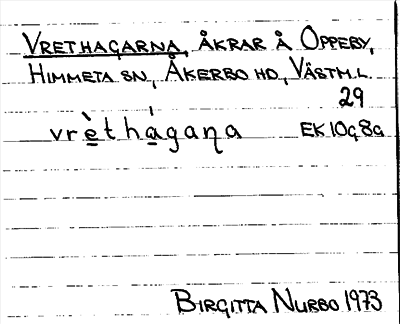 VRETHAGARNA, ÅKRAR Å OPPEBY,
HIMMETA SN, ÅKERBO HD, VÄSTM.L.
29
vrè̲thá̲gaɳa EK 10g8a
BIRGITTA NURBO 1973